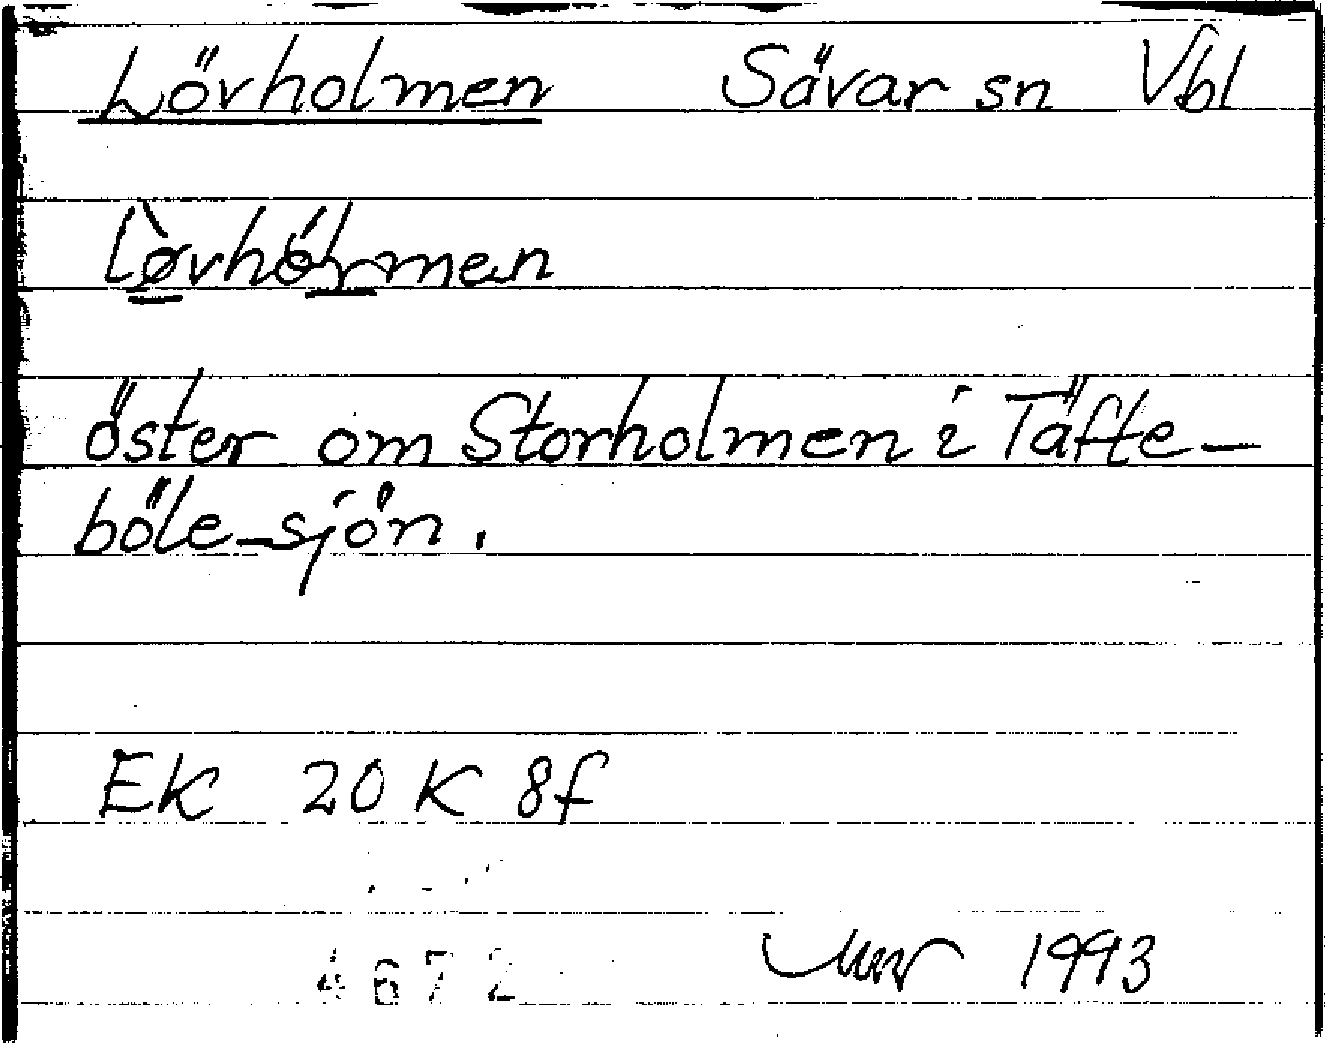 Lövholmen Sävar sn Vbl
löster om Storholmen i Täfte-
böle-sjön.
EK 20 K 8f
4672 1993